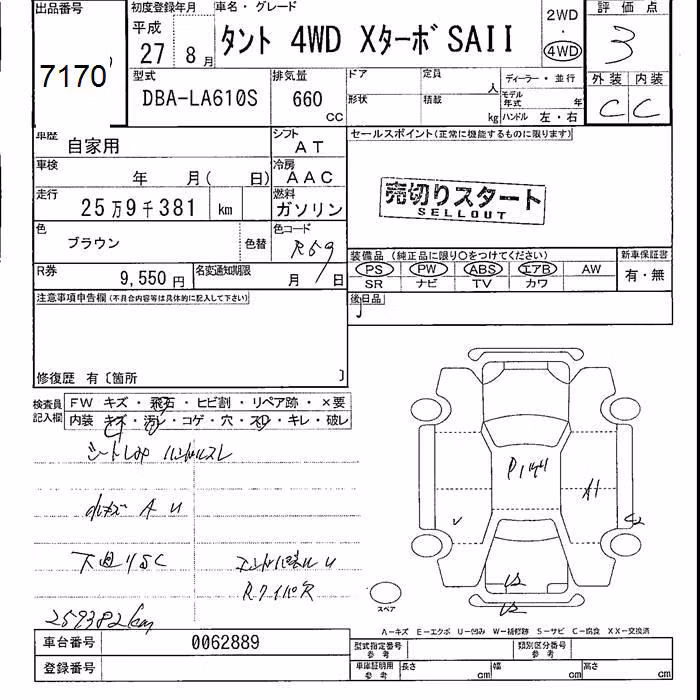 出品番号 初度登録年月 車名・グレード 2WD 評価点
7170 平成 27 8月 タント 4WD XターボSAII ・ 4WD 3
型式 排気量 ドア 定員 人 ディーラー・並行 外装 内装
DBA-LA610S 660 CC 形状 積載 kg モデル年式 年 C C
ハンドル 左・右
車歴 自家用 シフト AT セールスポイント(正常に機能するものに限ります)
車検 年 月( 日) 冷房 AAC
走行 25万9千381 km 燃料 ガソリン 売切りスタート
SELLOUT
色 ブラウン 色替 色コード R59
装備品(純正品に限り○をつけてください) 新車保証書
R券 9,550円 名変通知期限 月 日 PS PW ABS エアB AW 有・無
SR ナビ TV カワ
注意事項申告欄(不具合内容等は具体的に記入して下さい) 後日品
修復歴 有〔箇所 〕
検査員記入欄 FW キズ・飛石・ヒビ割・リペア跡・×要
内装 キズ・汚レ・コゲ・穴・スレ・キレ・破レ
ハンドルスレ
小キズ A U
下廻りSC
エンドパネル U
Rワイパ欠
259382km
P
A1
U2
U2
スペア
A―キズ E―エクボ U―凹み W―補修跡 S―サビ C―腐食 XX―交換済
車台番号 0062889 型式指定番号 参考 類別区分番号 参考
登録番号 車庫証明用 参考 長さ cm 幅 cm 高さ cm